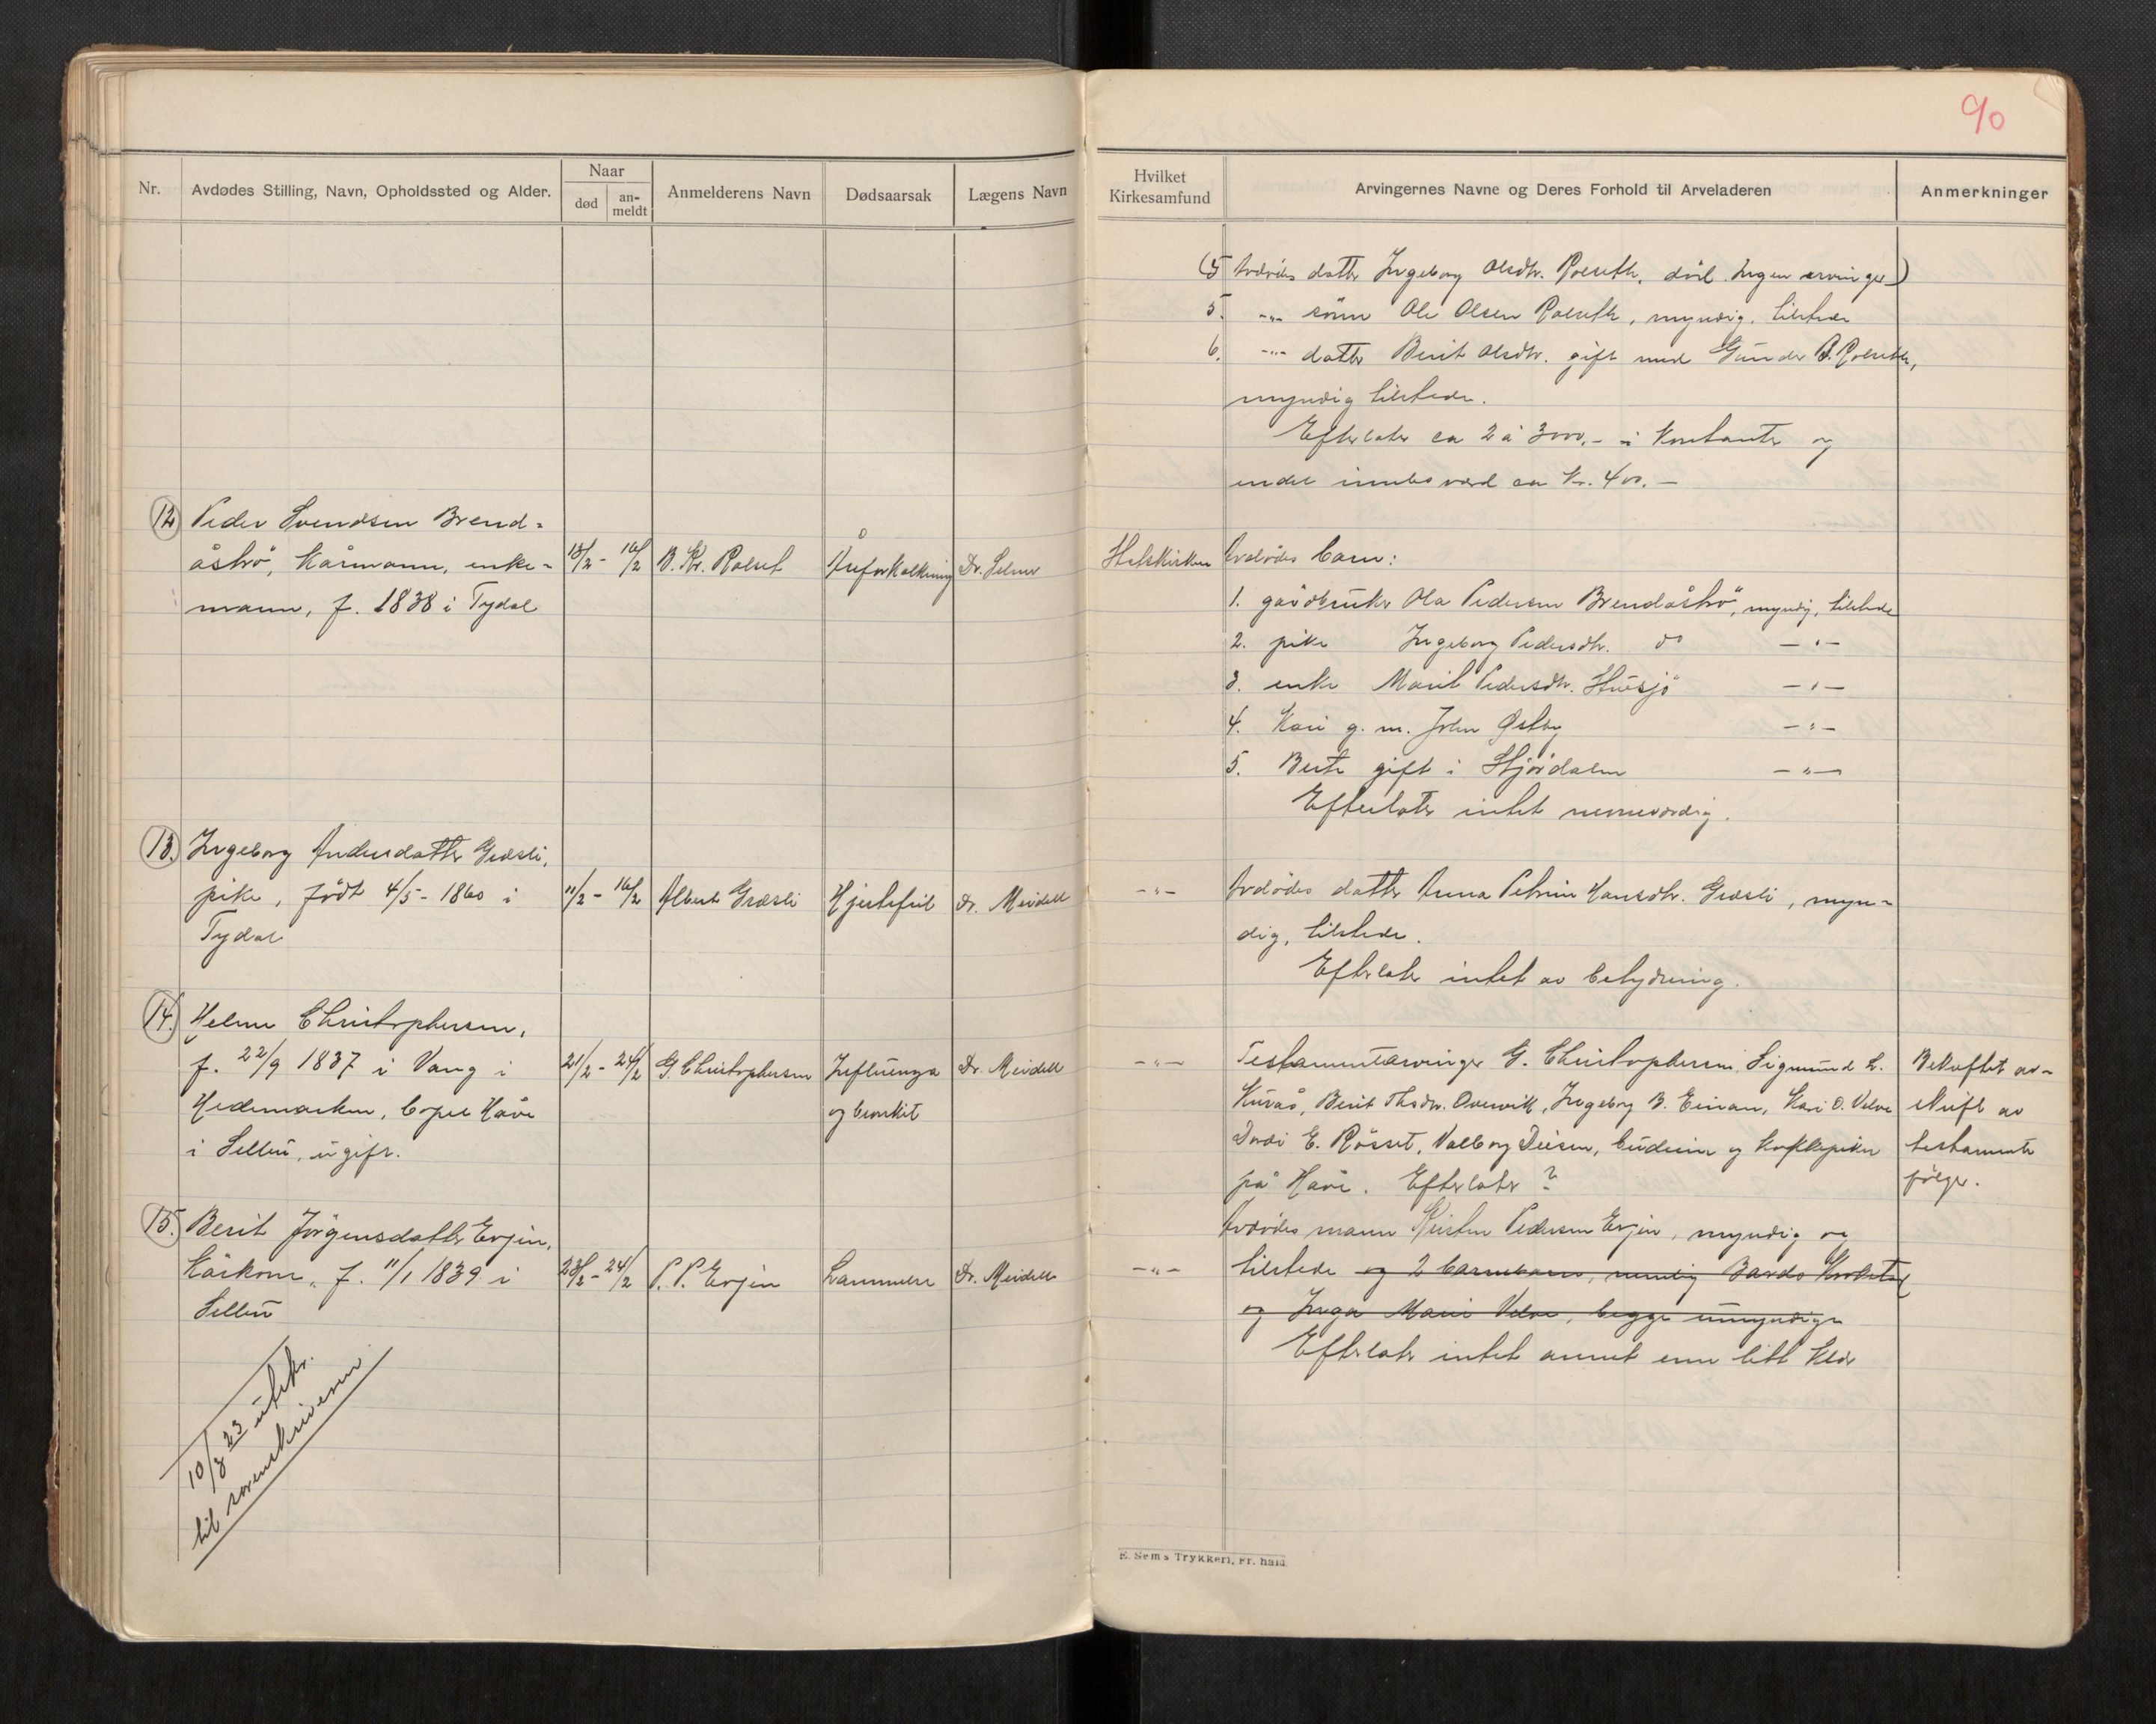 90
Nr.
Avdødes Stilling, Navn, Opholdssted og Alder.
Naar
død
an-
meldt
Anmelderens Navn
Dødsaarsak
Lægens Navn
Hvilket
Kirkesamfund
Arvingernes Navne og Deres Forhold til Arveladeren
Anmerkninger
(5 Avdødes datter Ingeborg Olsdtr. Rolseth, död. Ingen arvinger)
5. -"- sönn Ole Olsen Rolseth, myndig, tilstede
6. -"- datter Berit Olsdtr. gift med Gunder B. Rolseth,
myndig tilstede.
Efterlater ca 2 à 3000.- i kontanter og
endel innbo værd ca Kr. 400.-
12 Peder Svendsen Brend-
åströ, Kårmann, enke-
mann, f. 1838 i Tydal
13/2 - 16/2
B. Kr. Rolset
Åreforkalkning
Dr. Selmer
Statskirken
Avdödes barn:
1. gårdbruker Ola Pedersen Brendåströ, myndig, tilstede
2. pike Ingeborg Pedersdtr. do -"-
3. enke Marit Pedersdtr. Stuesjö -"-
4. Kari g. m. John Østby -"-
5. Berte gift i Stjördalen -"-
Efterlater intet nevneværdig.
13. Ingeborg Andersdatter Græsli,
pike, født 4/5 - 1860 i
Tydal
11/2 - 16/2
Albert Græsli
Hjertefeil
Dr. Meidell
-"-
Avdödes datter Anna Petrine Hansdtr. Græsli, myn-
dig, tilstede.
Efterlater intet av betydning.
14. Helene Christophersen,
f. 22/9 1837 i Vang i
Hedemarken, bopel Håve
i Selbu, ugift.
21/2 - 24/2
G. Christophersen
Influenza
og bronkit
Dr. Meidell
-"-
Testamentarvinger G. Christophersen, Sigmund L.
Kuraas, Berit Thsdtr. Overvik, Ingeborg B. Eiran, Kari O. Velve
Dordi E. Rösset, Valborg Deisen, budeien og kokkepiken
på Håve. Efterlater ?
Bekræftet av-
skrift av
testamente
følger.
15. Berit Jörgensdatter Evjen,
kårkone, f. 11/1 1839 i
Selbu
23/2 - 24/2
P. P. Evjen
Lammelse
Dr. Meidell
-"-
Avdödes mann Kristen Pedersen Evjen, myndig og
tilstede og 2 barnebarn, nemlig
og Inga Marie Velve, begge umyndige
Efterlater intet annet enn litt klær
10/3 23 utskr.
til sorenskriveren
E. Sem's Trykkeri, Fr.hald